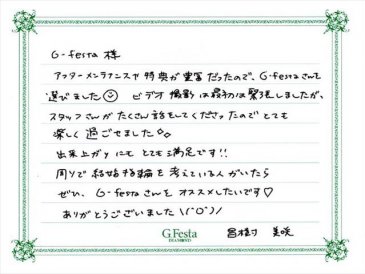 G-festa 様
アフターメンテナンスや特典が豊富だったので、G-festaさんを
選びました☺ ビデオ撮影は最初は緊張しましたが、
スタッフさんがたくさん話をしてくださったのでとても
楽しく過ごせました◇◇
出来上がりにもとても満足です!!
周りで結婚指輪を考えている人がいたら
ぜひ、G-festaさんをオススメしたいです♡
ありがとうございました\(^O^)/
美咲
G.Festa
DIAMOND